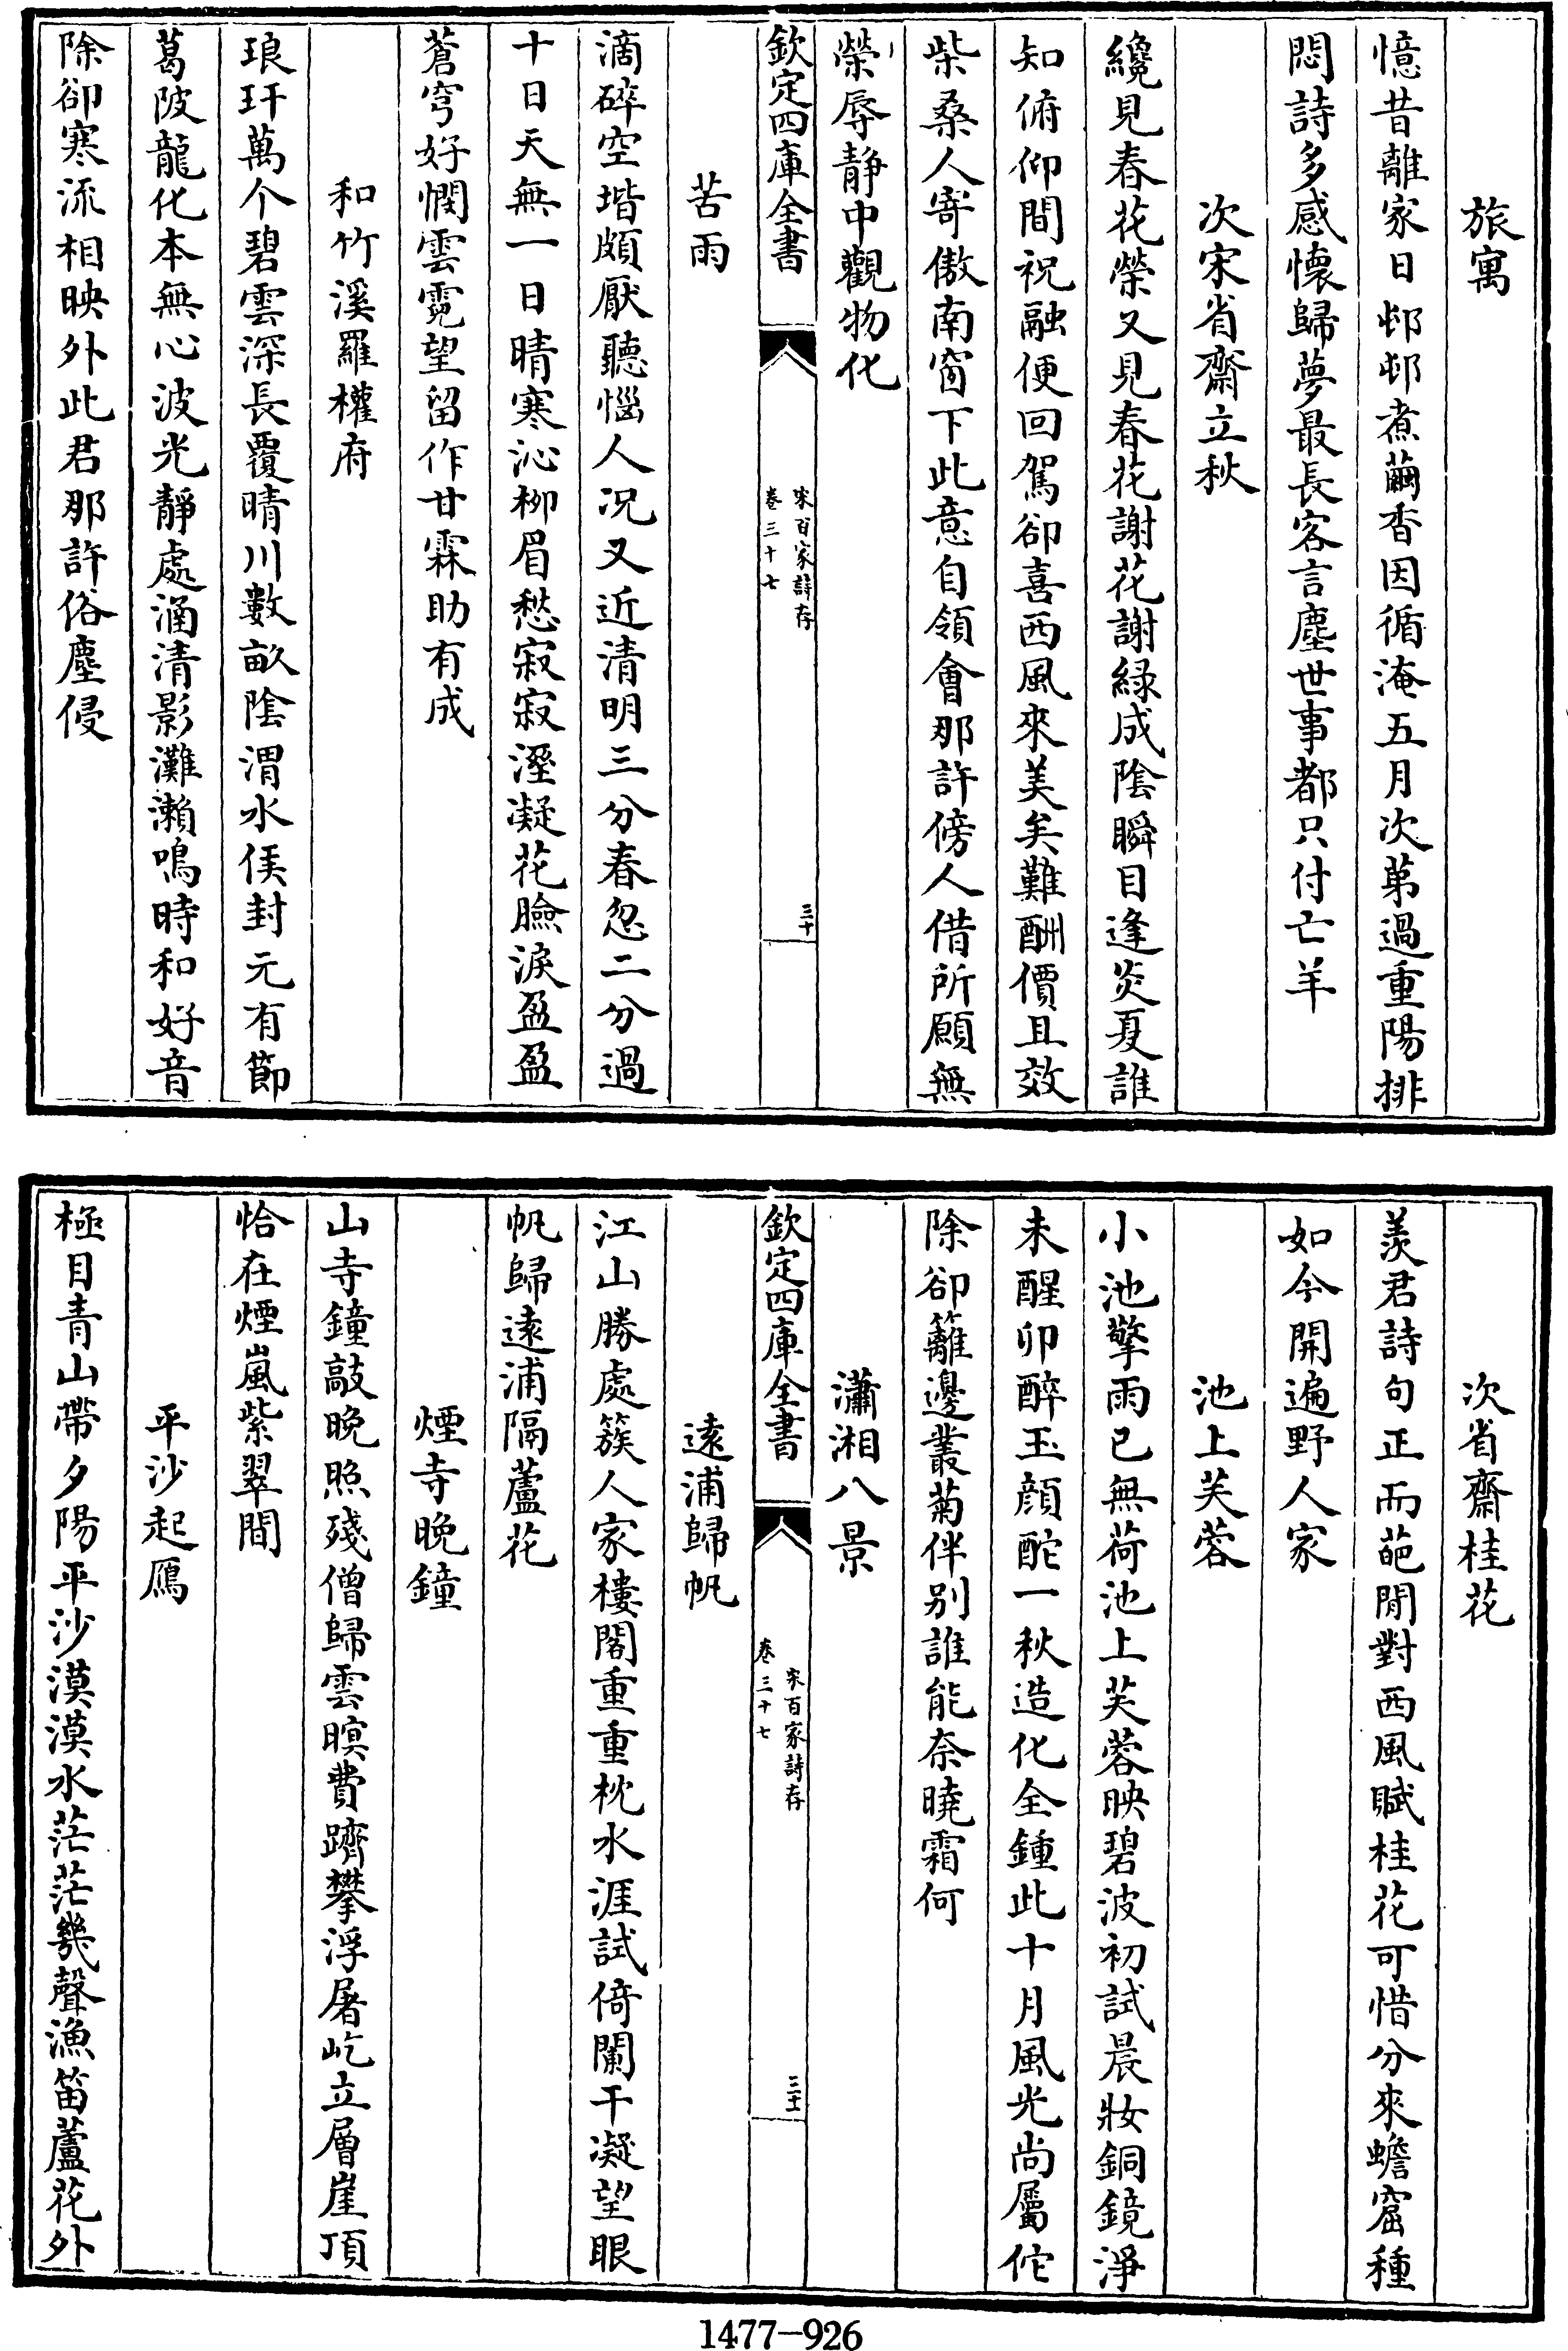 旅寓
憶昔離家日邨邨煮繭香因循淹五月次第過重陽排
悶詩多感懷歸夢最長客言塵世事都只付亡羊
次宋省齋立秋
纔見春花榮又見春花謝花謝緑成陰瞬目逢炎夏誰
知俯仰間祝融便回駕卻喜西風來美矣難酬價且效
柴桑人寄傲南窗下此意自領會那許傍人借所願無
榮辱靜中觀物化
欽定四庫全書
宋百家詩存
卷三十七
三十
苦雨
滴碎空堦頗厭聽惱人况又近清明三分春忽二分過
十日天無一日晴寒沁栁眉愁寂寂溼凝花臉淚盈盈
蒼穹好憫雲霓望留作甘霖助有成
和竹溪羅權府
琅玕萬个碧雲深長覆晴川數畝陰渭水侯封元有節
葛陂龍化本無心波光靜處涵清影灘瀨鳴時和好音
除卻寒流相映外此君那許俗塵侵
次省齋桂花
羡君詩句正而葩閒對西風賦桂花可惜分來蟾窟種
如今開遍野人家
池上芙蓉
小池擎雨已無荷池上芙蓉映碧波初試晨妝銅鏡淨
未醒卯醉玉顔酡一秋造化全鍾此十月風光尚屬佗
除卻籬邊叢菊伴别誰能奈曉霜何
瀟湘八景
欽定四庫全書
宋百家詩存
卷三十七
三十一
遠浦歸帆
江山勝處簇人家樓閣重重枕水涯試倚闌干凝望眼
帆歸遠浦隔蘆花
煙寺晚鐘
山寺鐘敲晚照殘僧歸雲暝費躋攀浮屠屹立層崖頂
恰在煙嵐紫翠間
平沙起鴈
極目青山帶夕陽平沙漠漠水茫茫幾聲漁笛蘆花外
1477-926